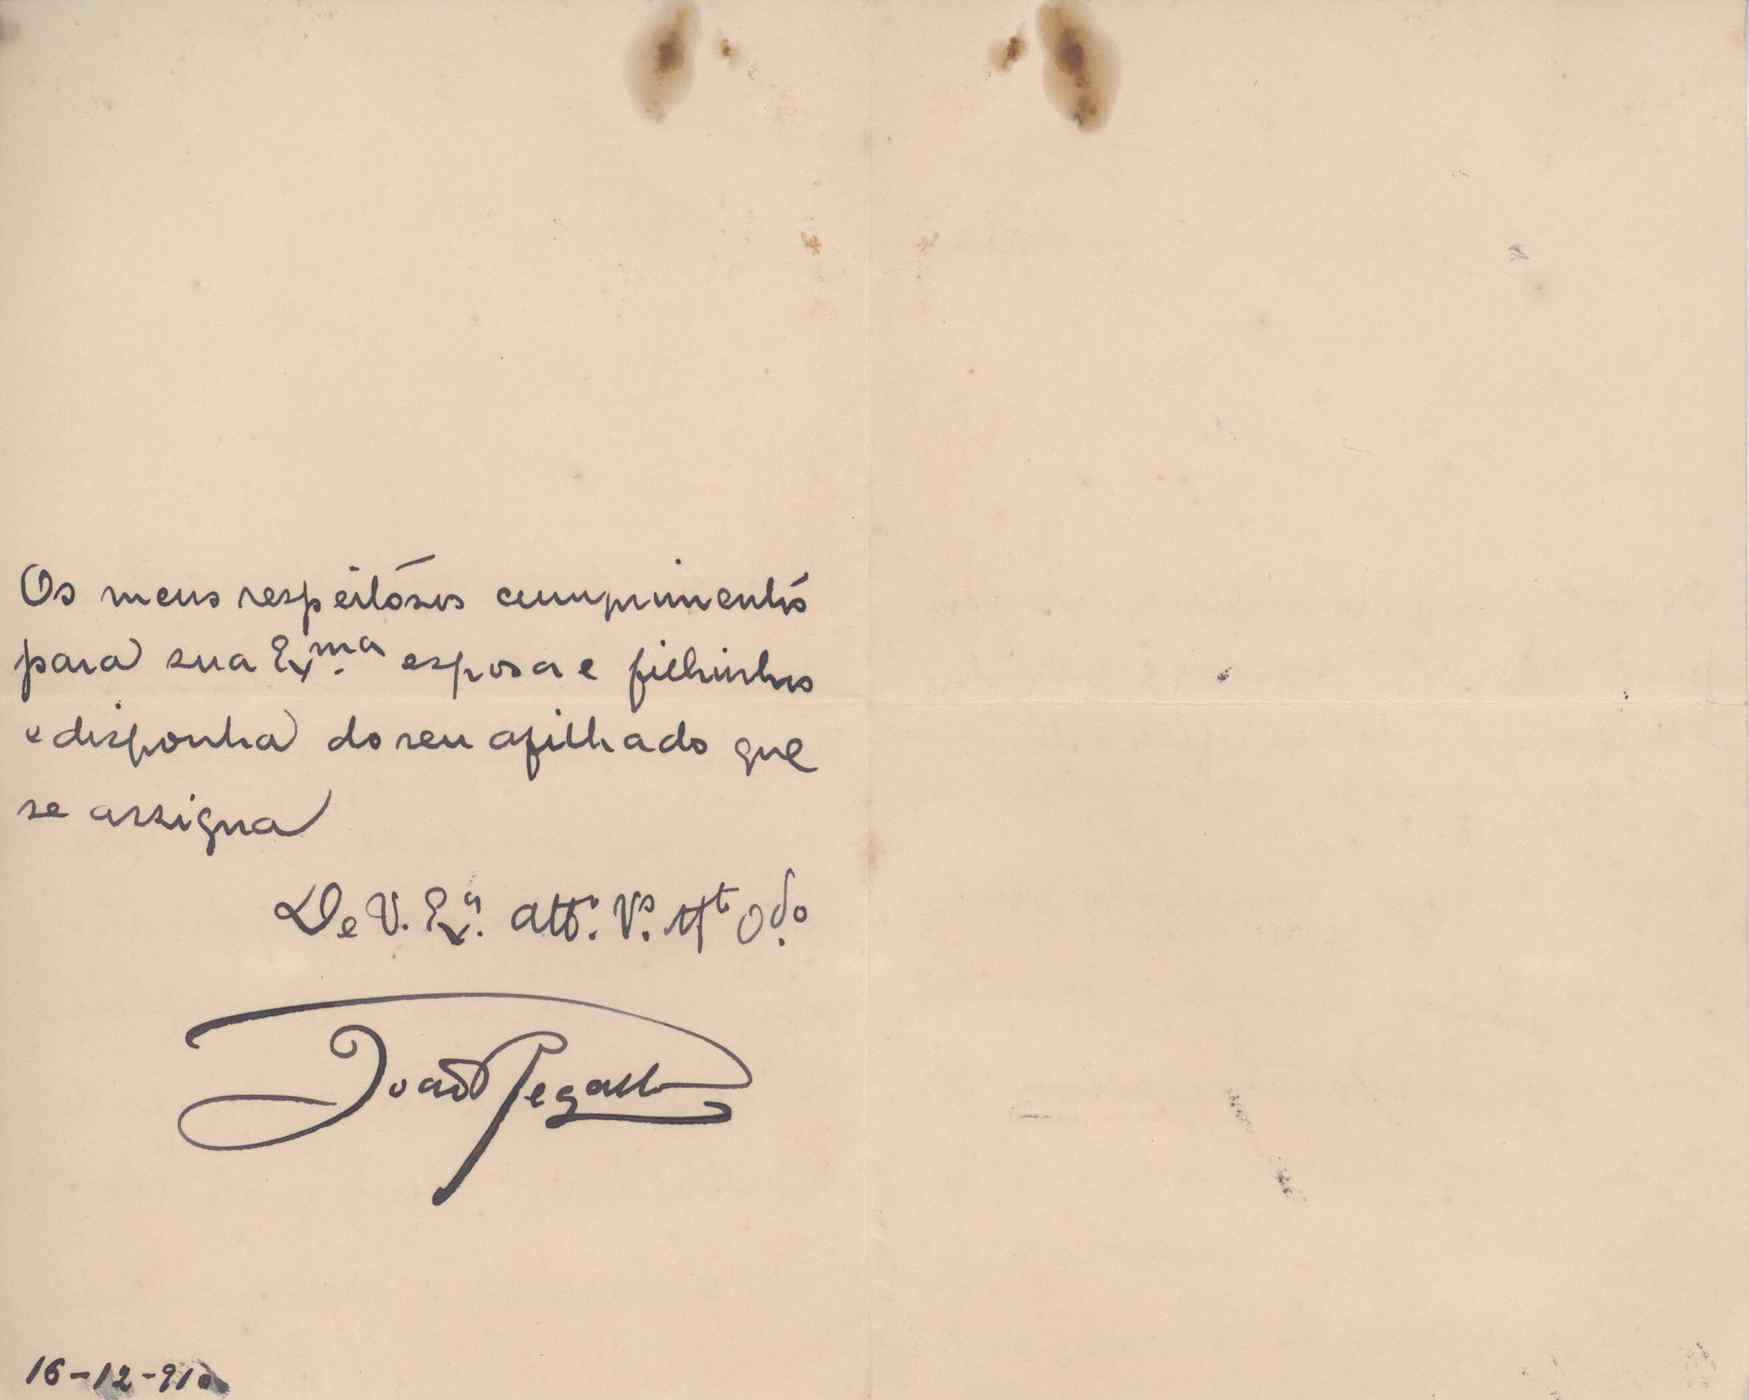 Os meus respeitósos cumprimentos
para sua Exma. esposa e filhinhos
e disponha do seu afilhado que
se assigna
De V. Exa. atto. Vor. Mto Odo.
João Pegado
16-12-910